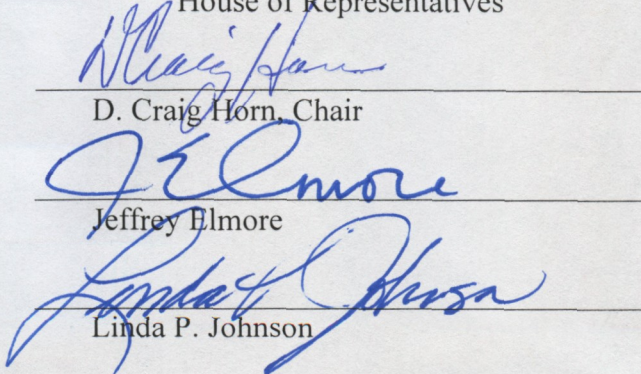 House of Representatives
D Craig Horn
D. Craig Horn, Chair
J Elmore
Jeffrey Elmore
Linda P Johnson
Linda P. Johnson